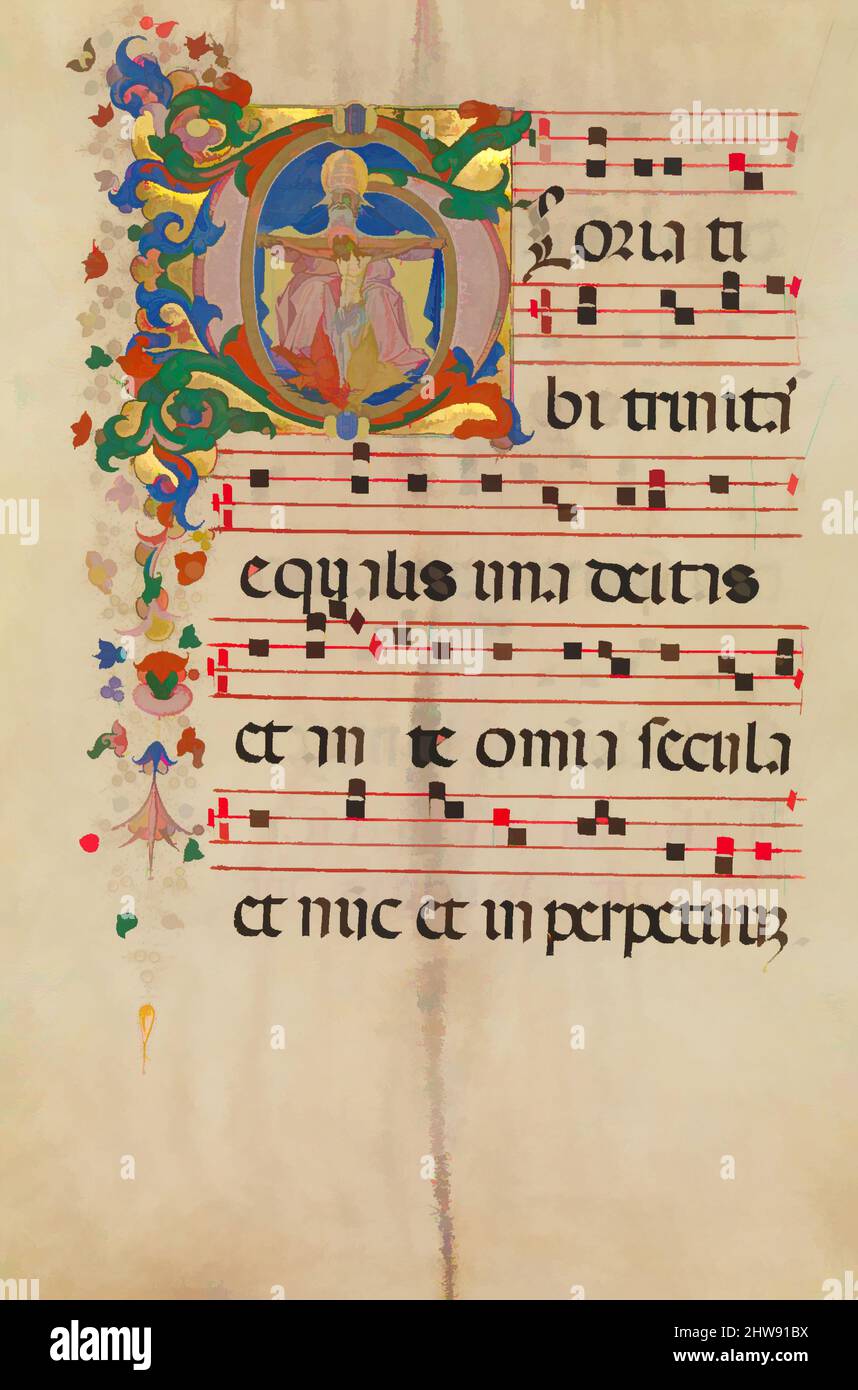 Gloria ti
bi trinita'
equalis una deitas
et an te omia secula
et nūc et in perpetuuz
alamy
Image ID: 2HW91BX
www.alamy.com